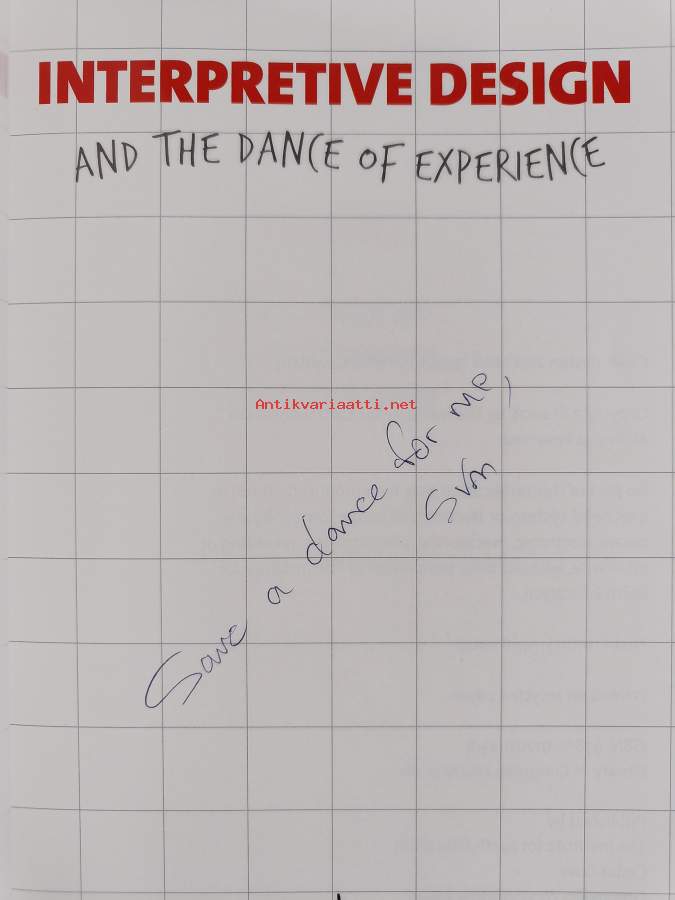 INTERPRETIVE DESIGN
AND THE DANCE OF EXPERIENCE
Antikvariaatti.net
Save a dance for me,